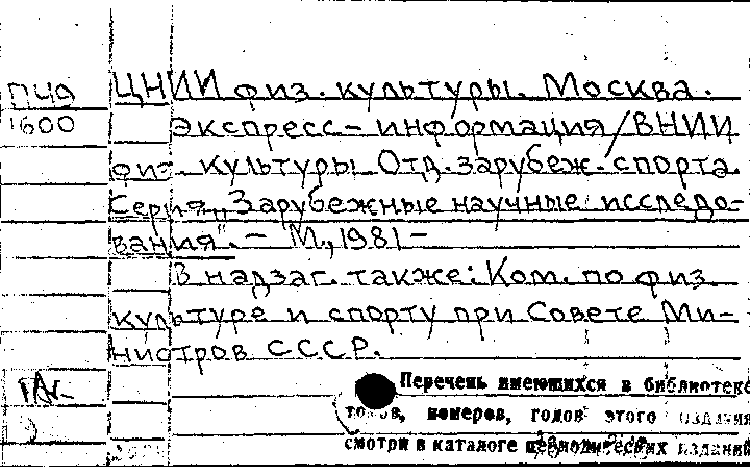 ПЧ9 ЦНИИ физ. культуры. Москва.
1600 Экспресс-информация/ВНИИ
физ. культуры. Отд. зарубеж. спорта.
Серия „Зарубежные научные исследо-
вания". – М., 1981 –
В надзаг. также: Ком. по физ.
культуре и спорту при Совете Ми-
нистров СССР.
Перечень имеющихся в библиотеке
томов, номеров, годов этого издания
смотри в каталоге периодических изданий